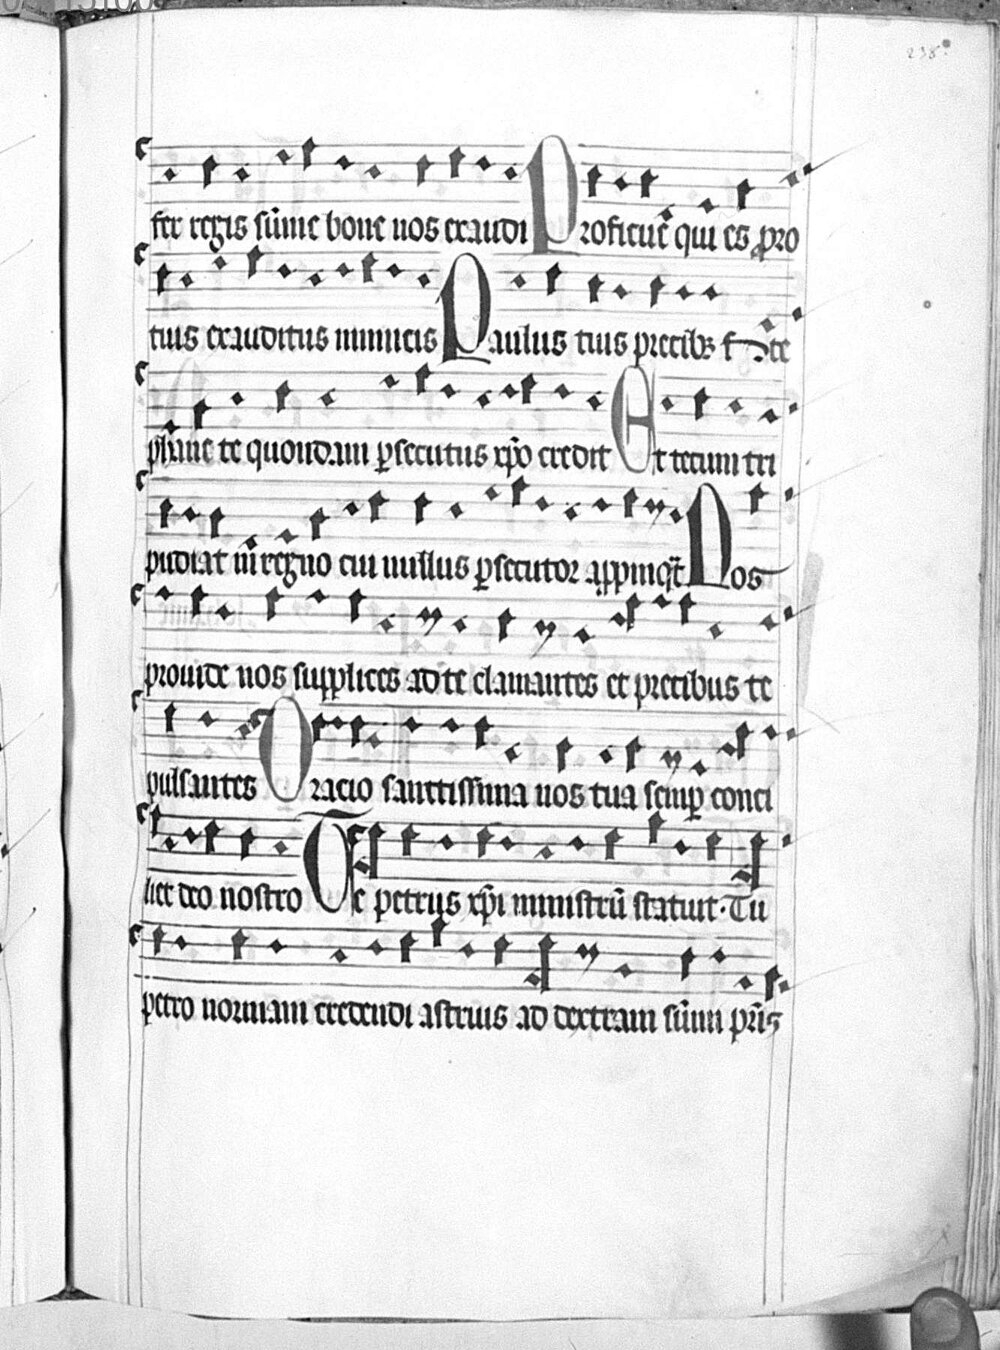 238
fer regis sūme bone nos exaudi Proficuē qui es pro
tuis exauditus inimicis Paulus tuis precibꝫ ste
phane te quondam ꝑsecutus xp̄o credit Et tecum tri
pudiat ī regno cui nullus ꝑsecutor appinq̄t Nos
prouide nos supplices ad te clamantes et precibus te
pulsantes Oracio sanctissima nos tua semꝑ conci
liet deo nostro Te petrus xp̄i ministrū statuit · Tu
petro normam credendi astruis ad dextram sūmi pr̄is